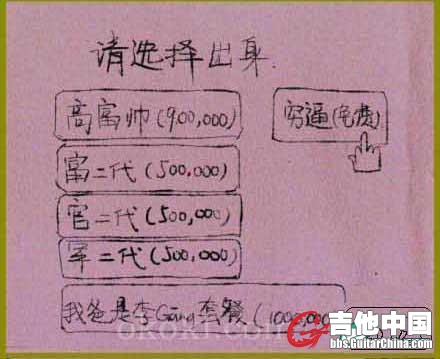 请选择出身
高富帅(900,000)
穷逼(免费)
富二代(500,000)
官二代(500,000)
军二代(500,000)
我爸是李Gāng套餐(1000,000
吉他中国
bbs.GuitarChina.com